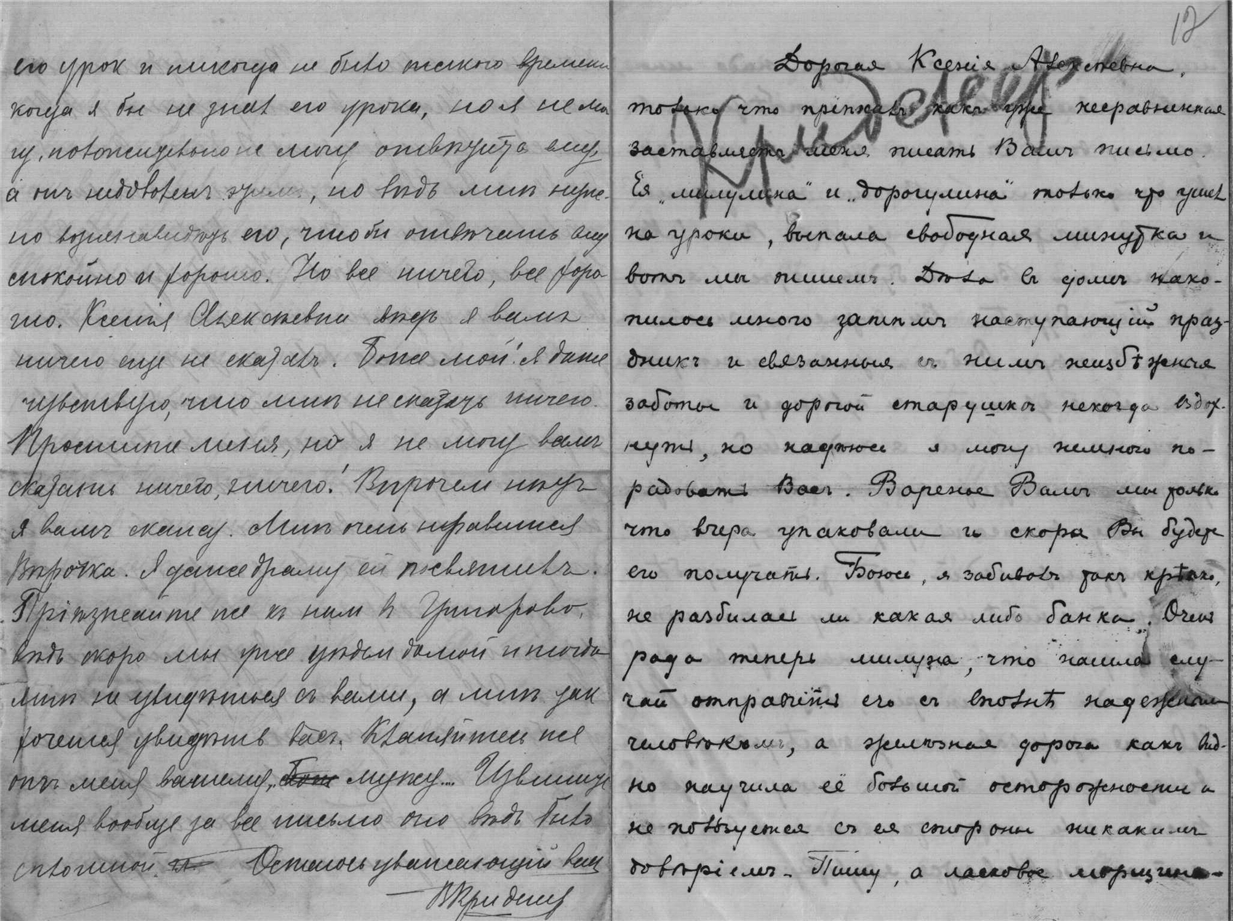 его урок и никогда не было такого времени
когда я бы не знал его урока, но я не мо
гу, положительно не могу отвѣчать ему
а онъ недоволенъ, но вѣдь мнѣ нуж-
но возненавидѣть его, чтобы отвѣчать ему
спокойно и хорошо. Но все ничего, все хоро
шо. Ксенія Алексѣевна вѣдь я вамъ
ничего еще не сказалъ. Боже мой! я даже
чувствую, что мнѣ не сказать ничего.
Простите меня, но я не могу вамъ
сказать ничего, ничего! Впрочем нѣтъ
я вамъ скажу. Мнѣ очень нравится
Вѣрочка. Я даже драму ей посвятилъ.
Пріѣзжайте же къ нам в Григорово,
вѣдь скоро мы уже уѣдем домой и тогда
мнѣ не увидѣться съ вами, а мнѣ так
хочется увидѣть васъ. Кланяйтесь же
отъ меня вашему мужу... Извините
меня вообще за все письмо оно вѣдь было
спѣшной. Остаюсь уважающій васъ
В Кридинер
12
Дорогая Ксенія Алексѣевна,
только что пріѣхавъ какъ уже несравненная
заставляетъ меня писать Вамъ письмо.
Ея „милулина" и „дорогулина" только что ушел
на уроки, выпала свободная минутка и
вотъ мы пишемъ. Дѣла въ домѣ нако-
пилось много затѣмъ наступающій праз-
дникъ и связанныя съ нимъ неизбѣжныя
заботы и дорогой старушкѣ некогда вздох-
нуть, но надѣюсь я могу немного по-
радовать Васъ. Варенье Вамъ мы только
что вчера упаковали и скоро Вы будете
его получать. Боюсь, я забивалъ такъ крѣпко,
не разбилась ли какая либо банка. Очень
рада теперь милуша, что нашла слу-
чай отправить его съ вполнѣ надежным
человѣкомъ, а желѣзная дорога какъ вид-
но научила её большой осторожности и
не пользуется съ ея стороны никакимъ
довѣріемъ. Пишу, а ласковое морщини-